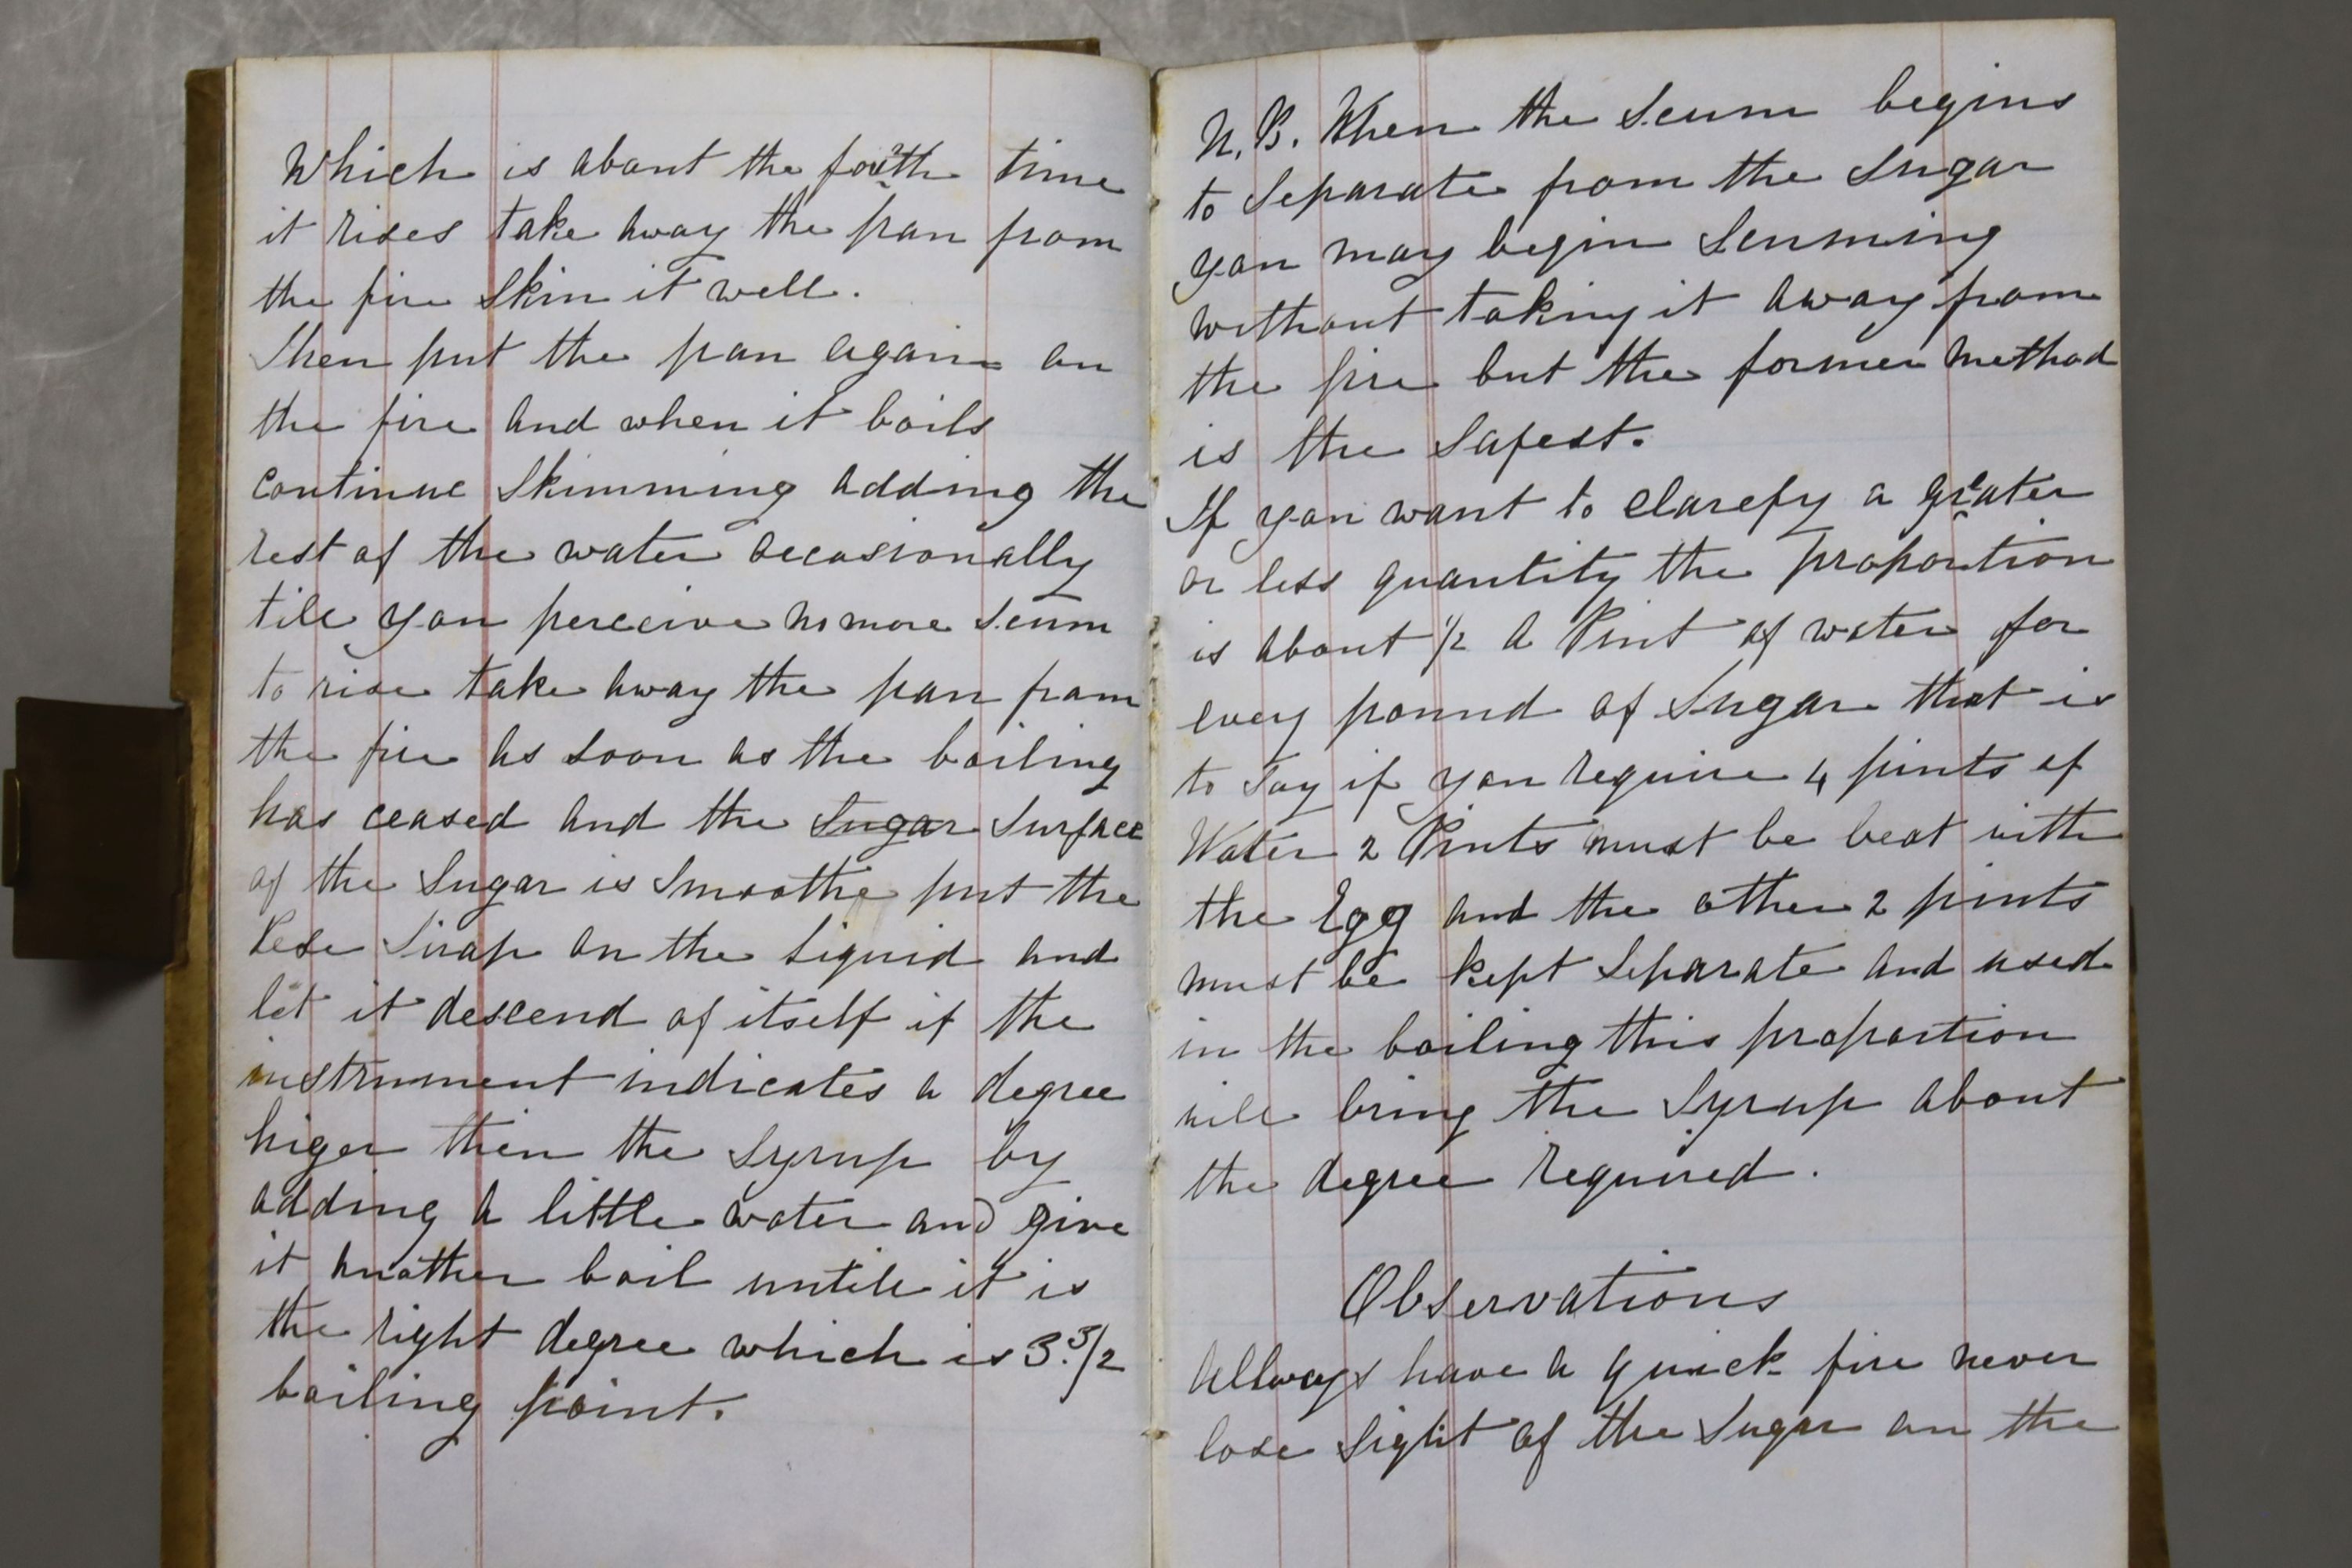 Which is about the fourth time
it rises take away the pan from
the fire skin it well.
Then put the pan again on
the fire and when it boils
continue skimming adding the
rest of the water occasionally
till you perceive no more scum
to rise take away the pan from
the fire as soon as the boiling
has ceased and the Sugar Surface
of the Sugar is Smoothe put the
Sirap on the liquid and
let it descend of itself if the
instrument indicates a degree
higer then the Syrup by
adding a little water and give
it another boil untill it is
the right degree which is
boiling point.
N.B. When the Scum begins
to Separate from the Sugar
you may begin Scumming
without taking it away from
the fire but the former method
is the Safest.
If you want to clarefy a greater
or less quantity the proportion
is about 1/2 a Pint of water for
every pound of Sugar that is
to Say if you require 4 pints of
Water 2 Pints must be beat with
the Egg and the other 2 pints
must be kept Separate and used
in the boiling this proportion
will bring the Syrup about
the degree required.
Observations
Allways have a quick fire never
lose Sight of the Sugar on the